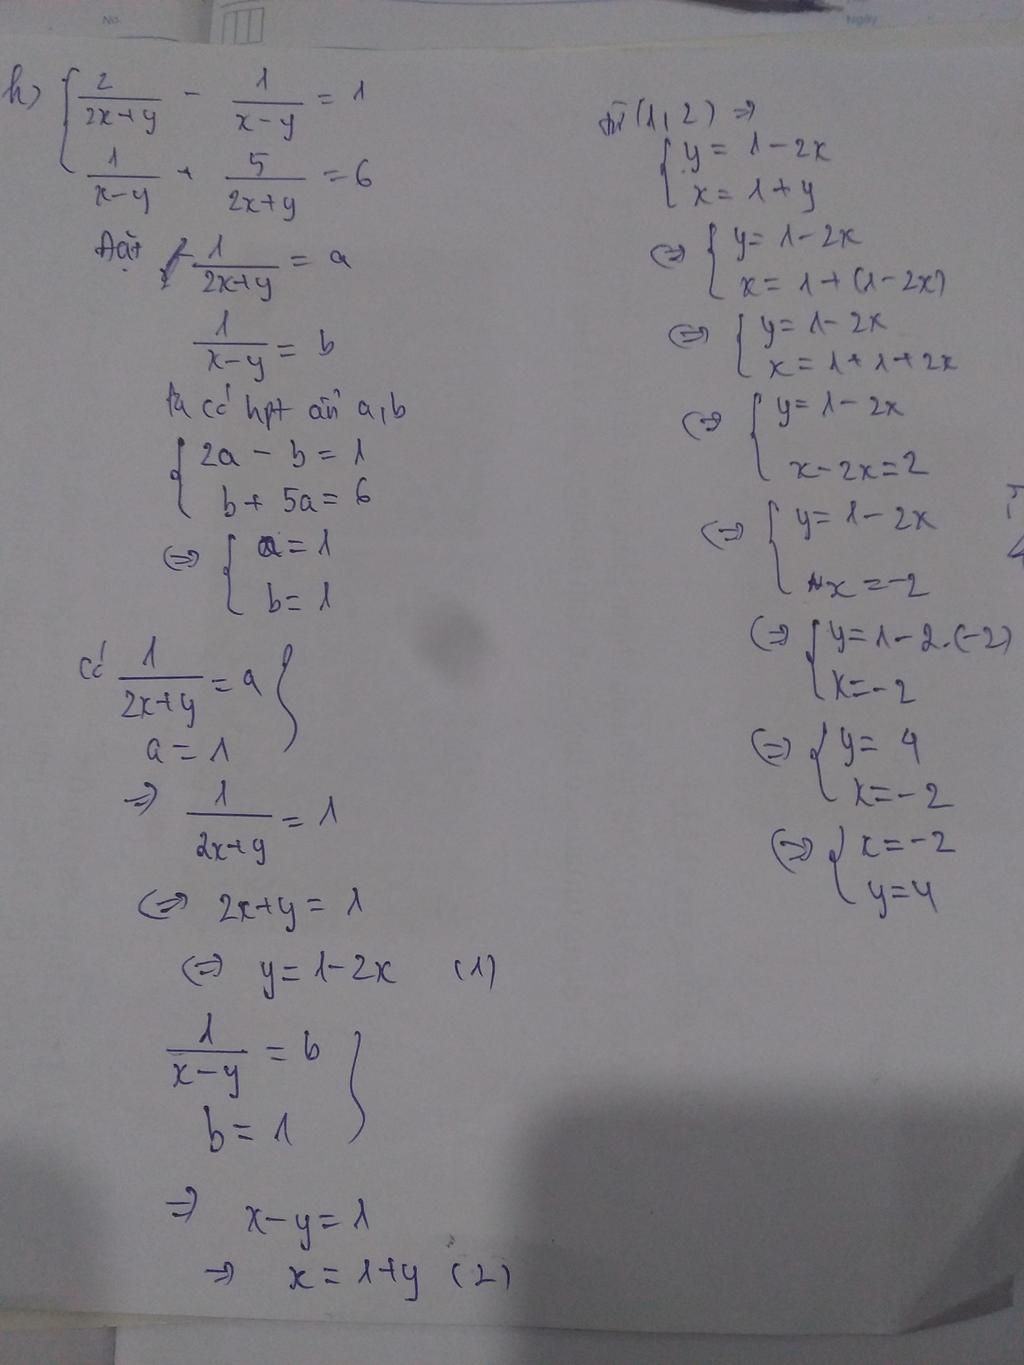 No.
Ngày
h) { 2/(2x+y) - 1/(x-y) = 1
1/(x-y) + 5/(2x+y) = 6
Đặt 1/(2x+y) = a
1/(x-y) = b
ta có hpt ẩn a,b
{ 2a - b = 1
b + 5a = 6
(=) { a = 1
b = 1
Có 1/(2x+y) = a }
a = 1
=> 1/(2x+y) = 1
(=) 2x+y = 1
(=) y = 1-2x (1)
1/(x-y) = b }
b = 1
=> x-y = 1
=> x = 1+y (2)
từ (1,2) =>
{ y = 1-2x
x = 1+y
(=) { y = 1-2x
x = 1+(1-2x)
(=) { y = 1-2x
x = 1+1+2x
(=) { y = 1-2x
x-2x=2
(=) { y = 1-2x
x = -2
(=) { y = 1-2.(-2)
x = -2
(=) { y = 4
x = -2
(=) { x = -2
y = 4